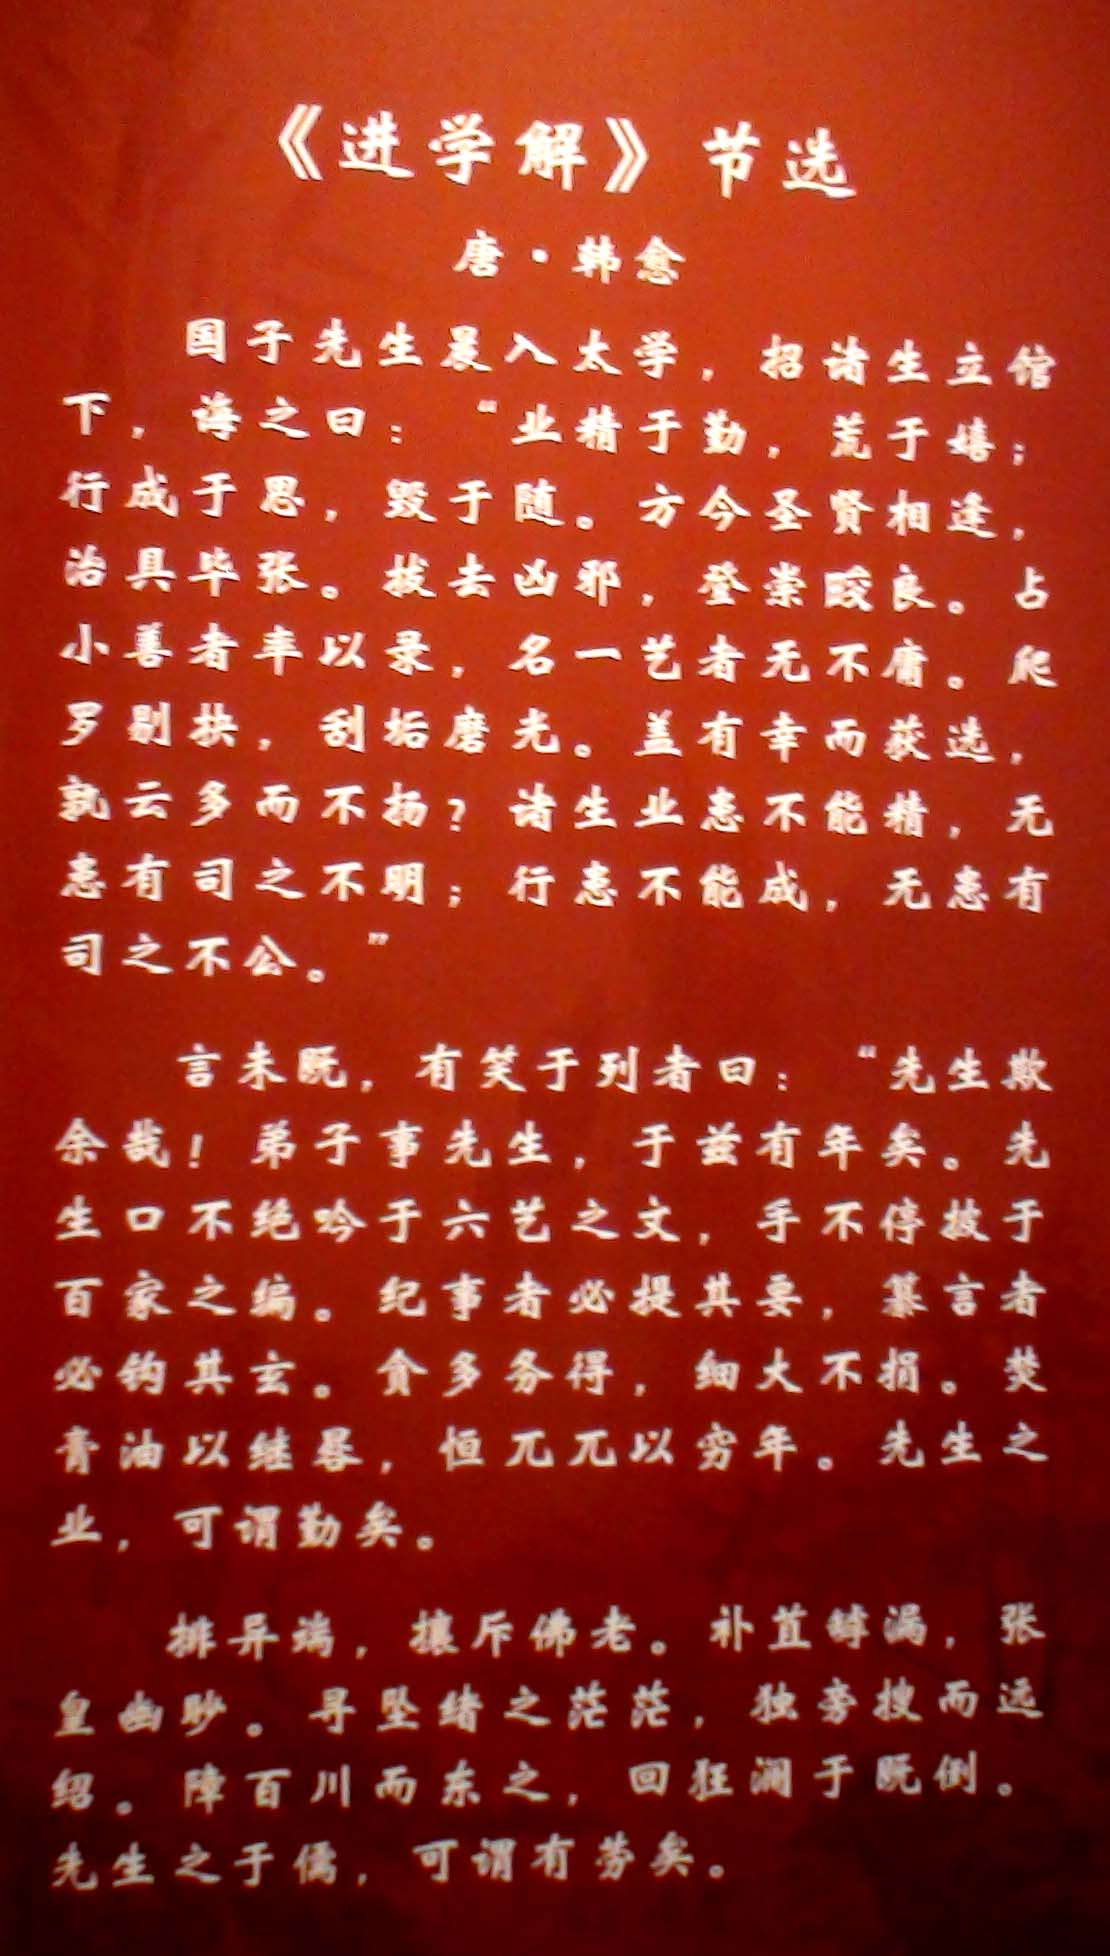 《进学解》节选
唐·韩愈
国子先生晨入太学，招诸生立馆
下，诲之曰：“业精于勤，荒于嬉；
行成于思，毁于随。方今圣贤相逢，
治具毕张。拔去凶邪，登崇畯良。占
小善者率以录，名一艺者无不庸。爬
罗剔抉，刮垢磨光。盖有幸而获选，
孰云多而不扬？诸生业患不能精，无
患有司之不明；行患不能成，无患有
司之不公。”
言未既，有笑于列者曰：“先生欺
余哉！弟子事先生，于兹有年矣。先
生口不绝吟于六艺之文，手不停披于
百家之编。纪事者必提其要，纂言者
必钩其玄。贪多务得，细大不捐。焚
膏油以继晷，恒兀兀以穷年。先生之
业，可谓勤矣。
排异端，攘斥佛老。补苴罅漏，张
皇幽眇。寻坠绪之茫茫，独旁搜而远
绍。障百川而东之，回狂澜于既倒。
先生之于儒，可谓有劳矣。